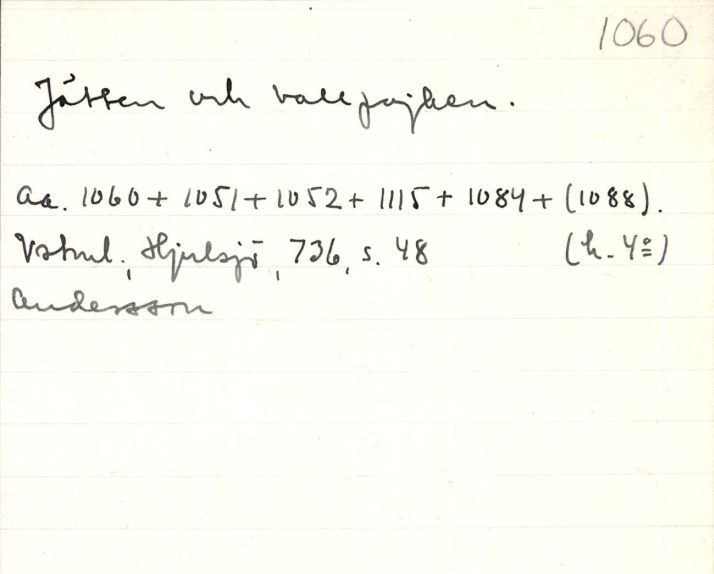 1060
Jätten och vallpojken.
Aa. 1060 + 1051 + 1052 + 1115 + 1084 + (1088).
Vstml., Hjulsjö, 736, s. 48 (h. 4º)
Andersson